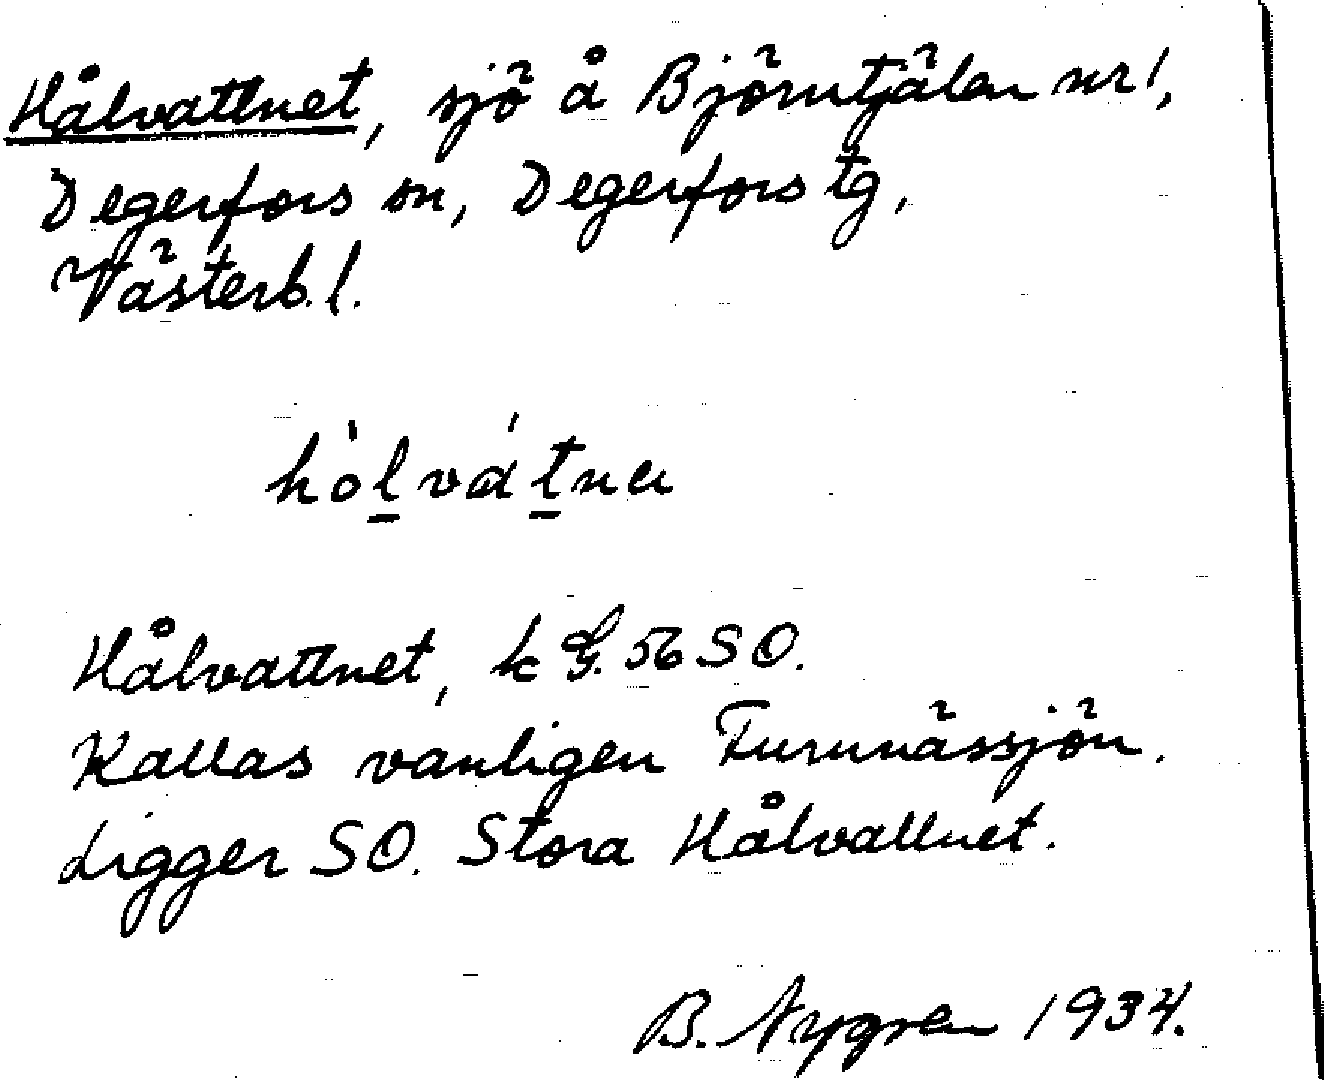 Hålvattnet, sjö å Björntjälen nr 1,
Degerfors sn, Degerfors tg,
Västerb. l.
Hålvattnet, k G. 56 SO.
Kallas vanligen Furunässjön.
Ligger SO. Stora Hålvattnet.
B. Nygren 1934.